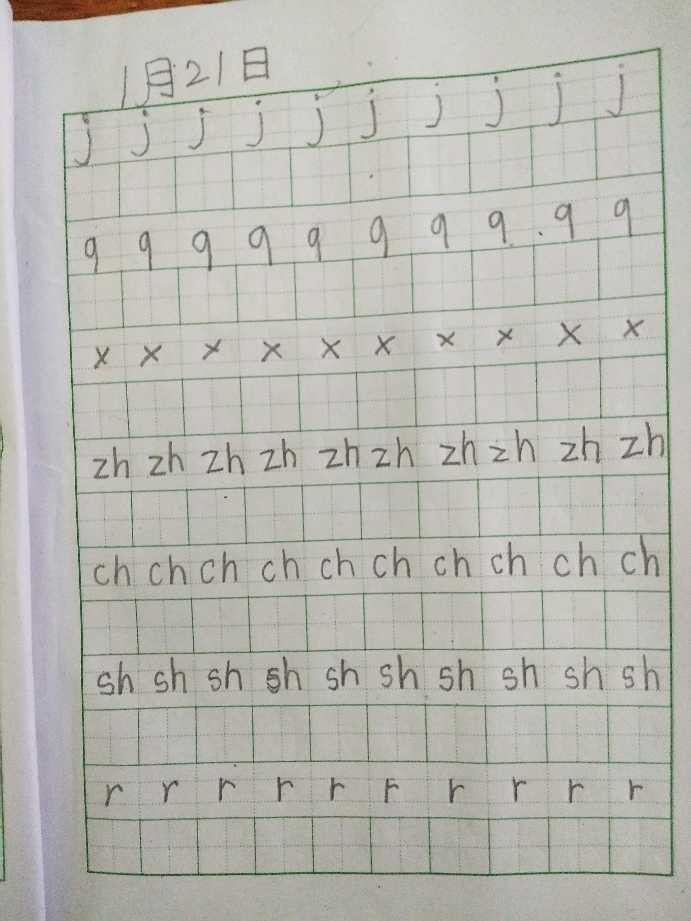 1月21日
j j j j j j j j j j
q q q q q q q q q q
x x x x x x x x x x
zh zh zh zh zh zh zh zh zh zh
ch ch ch ch ch ch ch ch ch ch
sh sh sh sh sh sh sh sh sh sh
r r r r r r r r r r